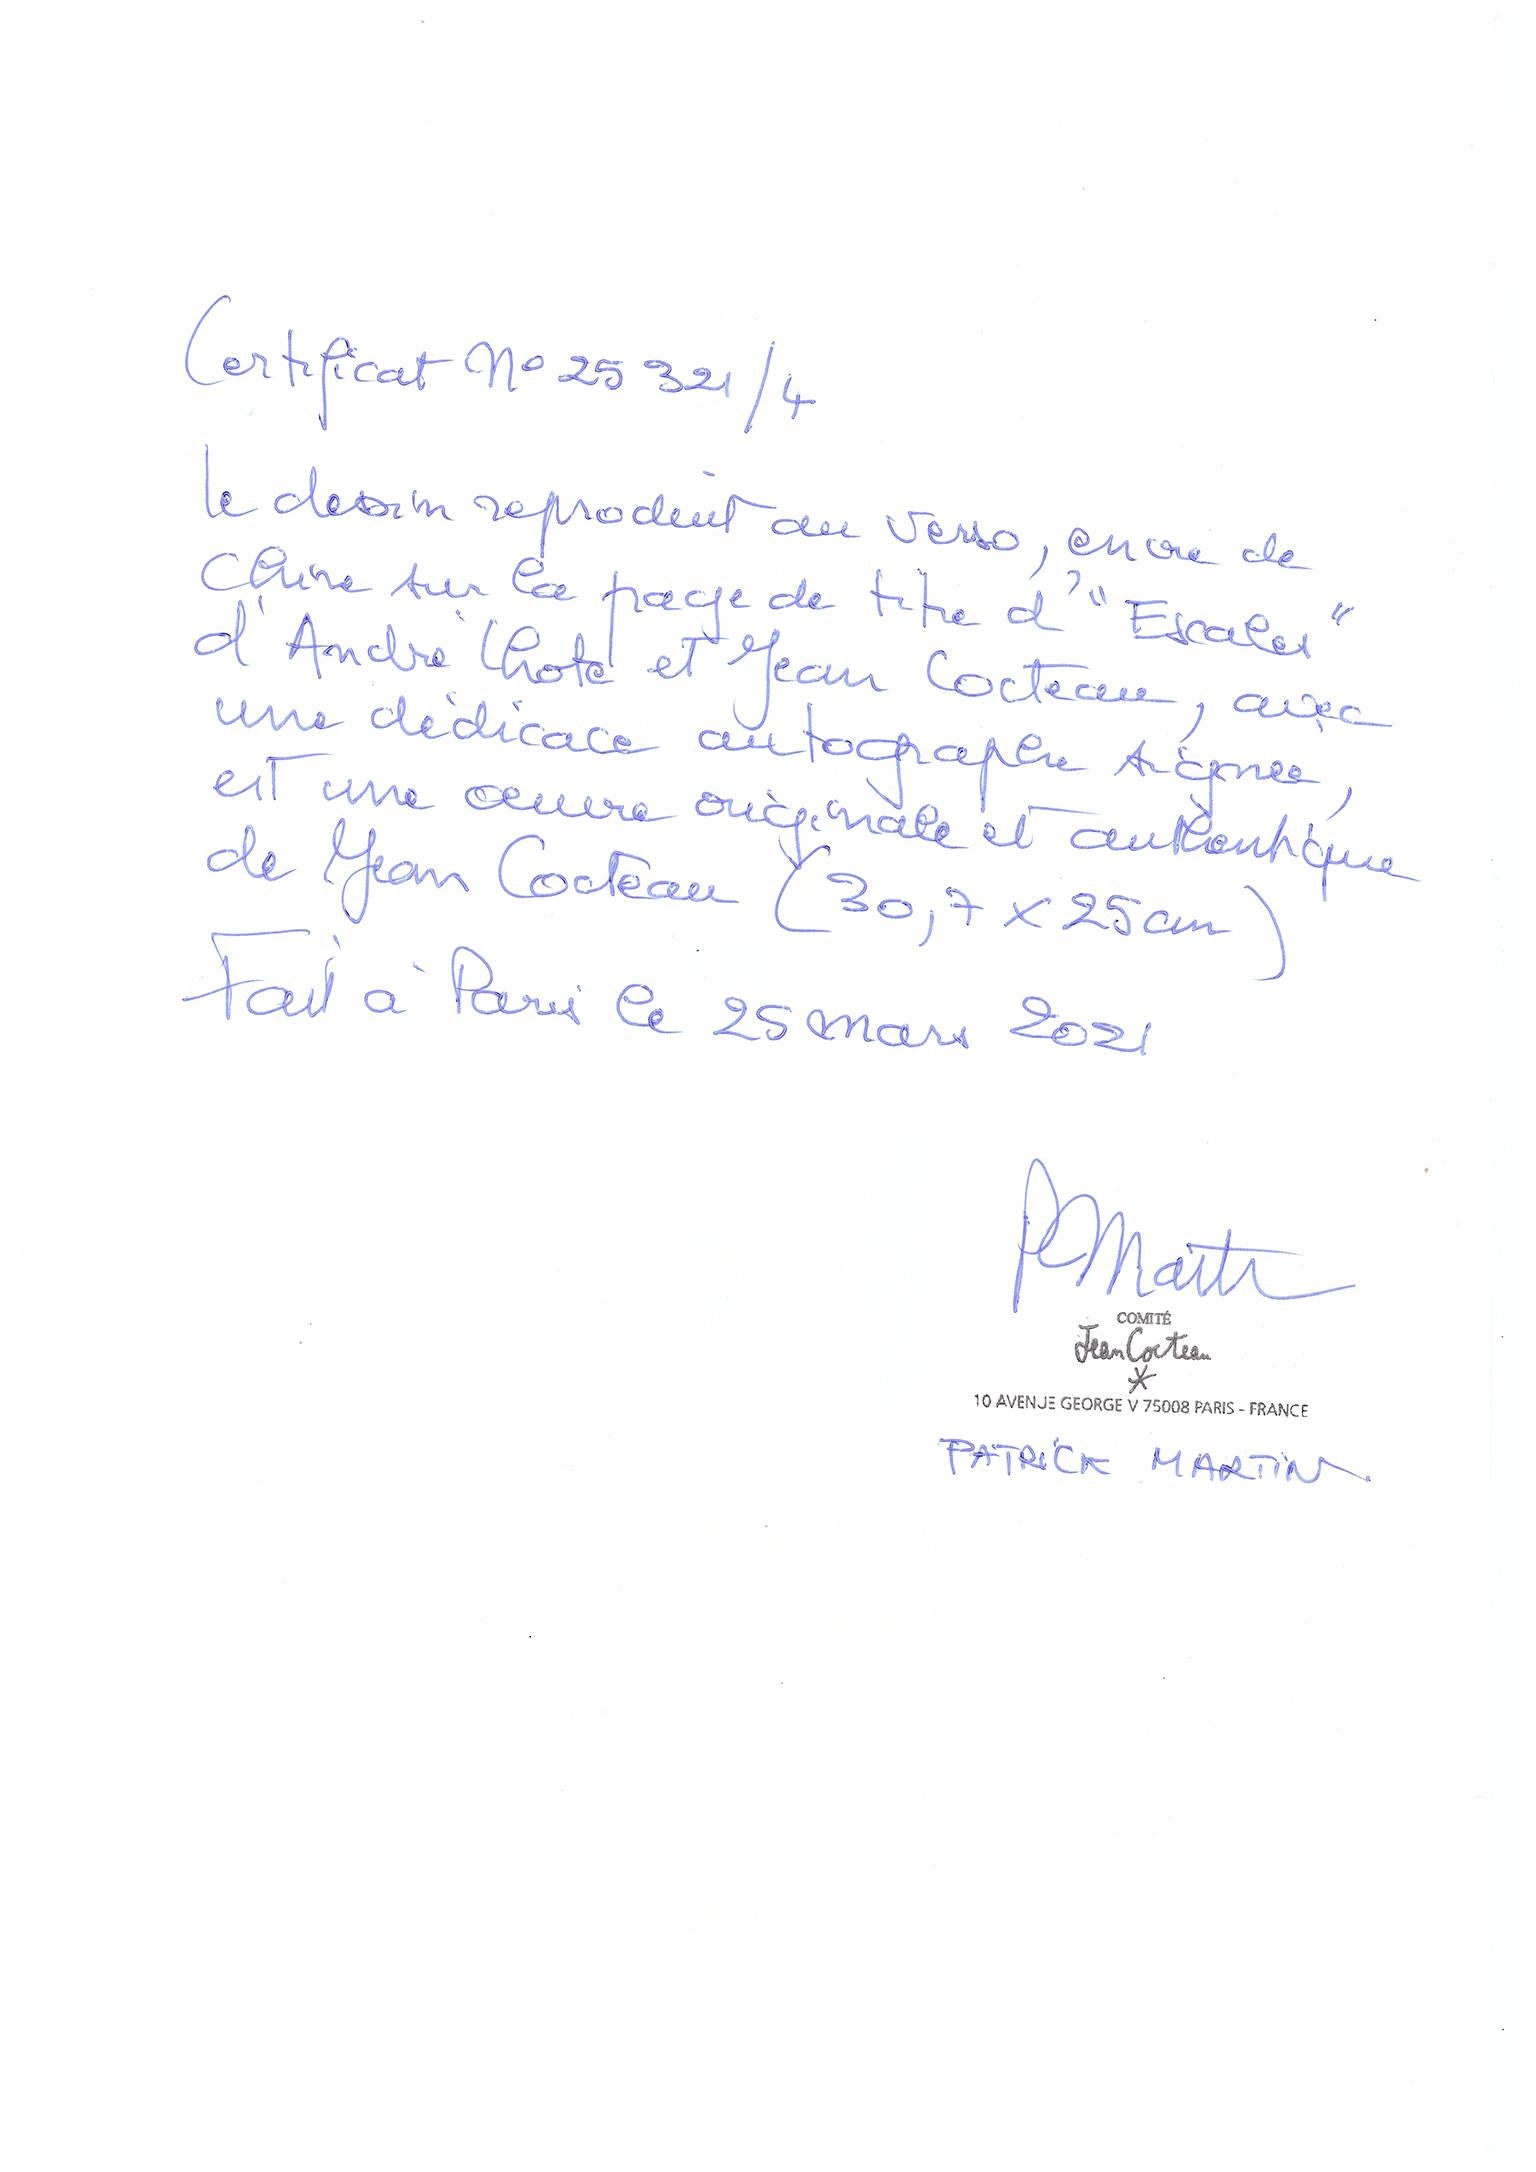 Certificat N° 25 321/4
le dessin reproduit au verso, encre de
Chine sur la page de titre d'"Escales"
d'André Lhote et Jean Cocteau, avec
une dédicace autographe signée,
est une œuvre originale et authentique
de Jean Cocteau (30,7 x 25 cm)
Fait à Paris le 25 mars 2021
P Martin
COMITÉ
Jean Cocteau
*
10 AVENUE GEORGE V 75008 PARIS - FRANCE
PATRICK MARTIN